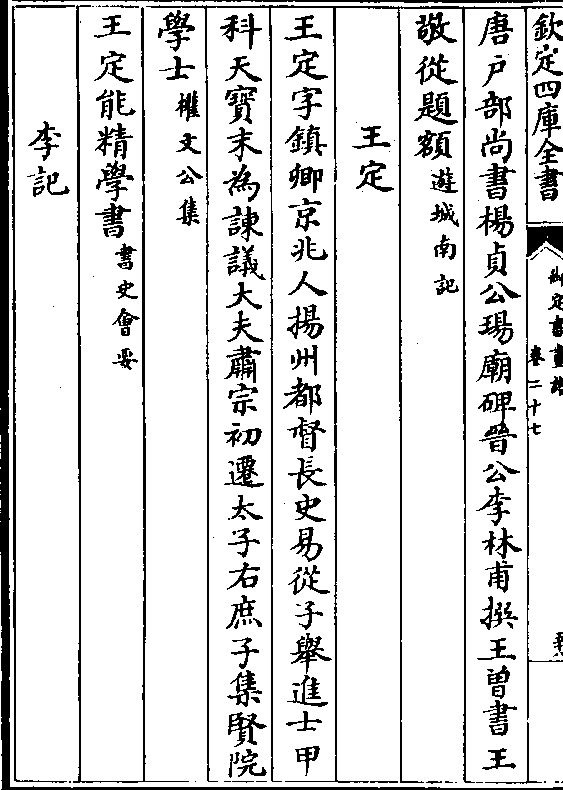 欽定四庫全書
御定書畫譜
卷二十七
唐戶部尚書楊貞公瑒廟碑晉公李林甫撰王曽書王
敬從題額遊城南記
王定
王定字鎮卿京兆人揚州都督長史易從子舉進士甲
科天寶末為諫議大夫肅宗初遷太子右庶子集賢院
學士權文公集
王定能精學書書史會要
李記